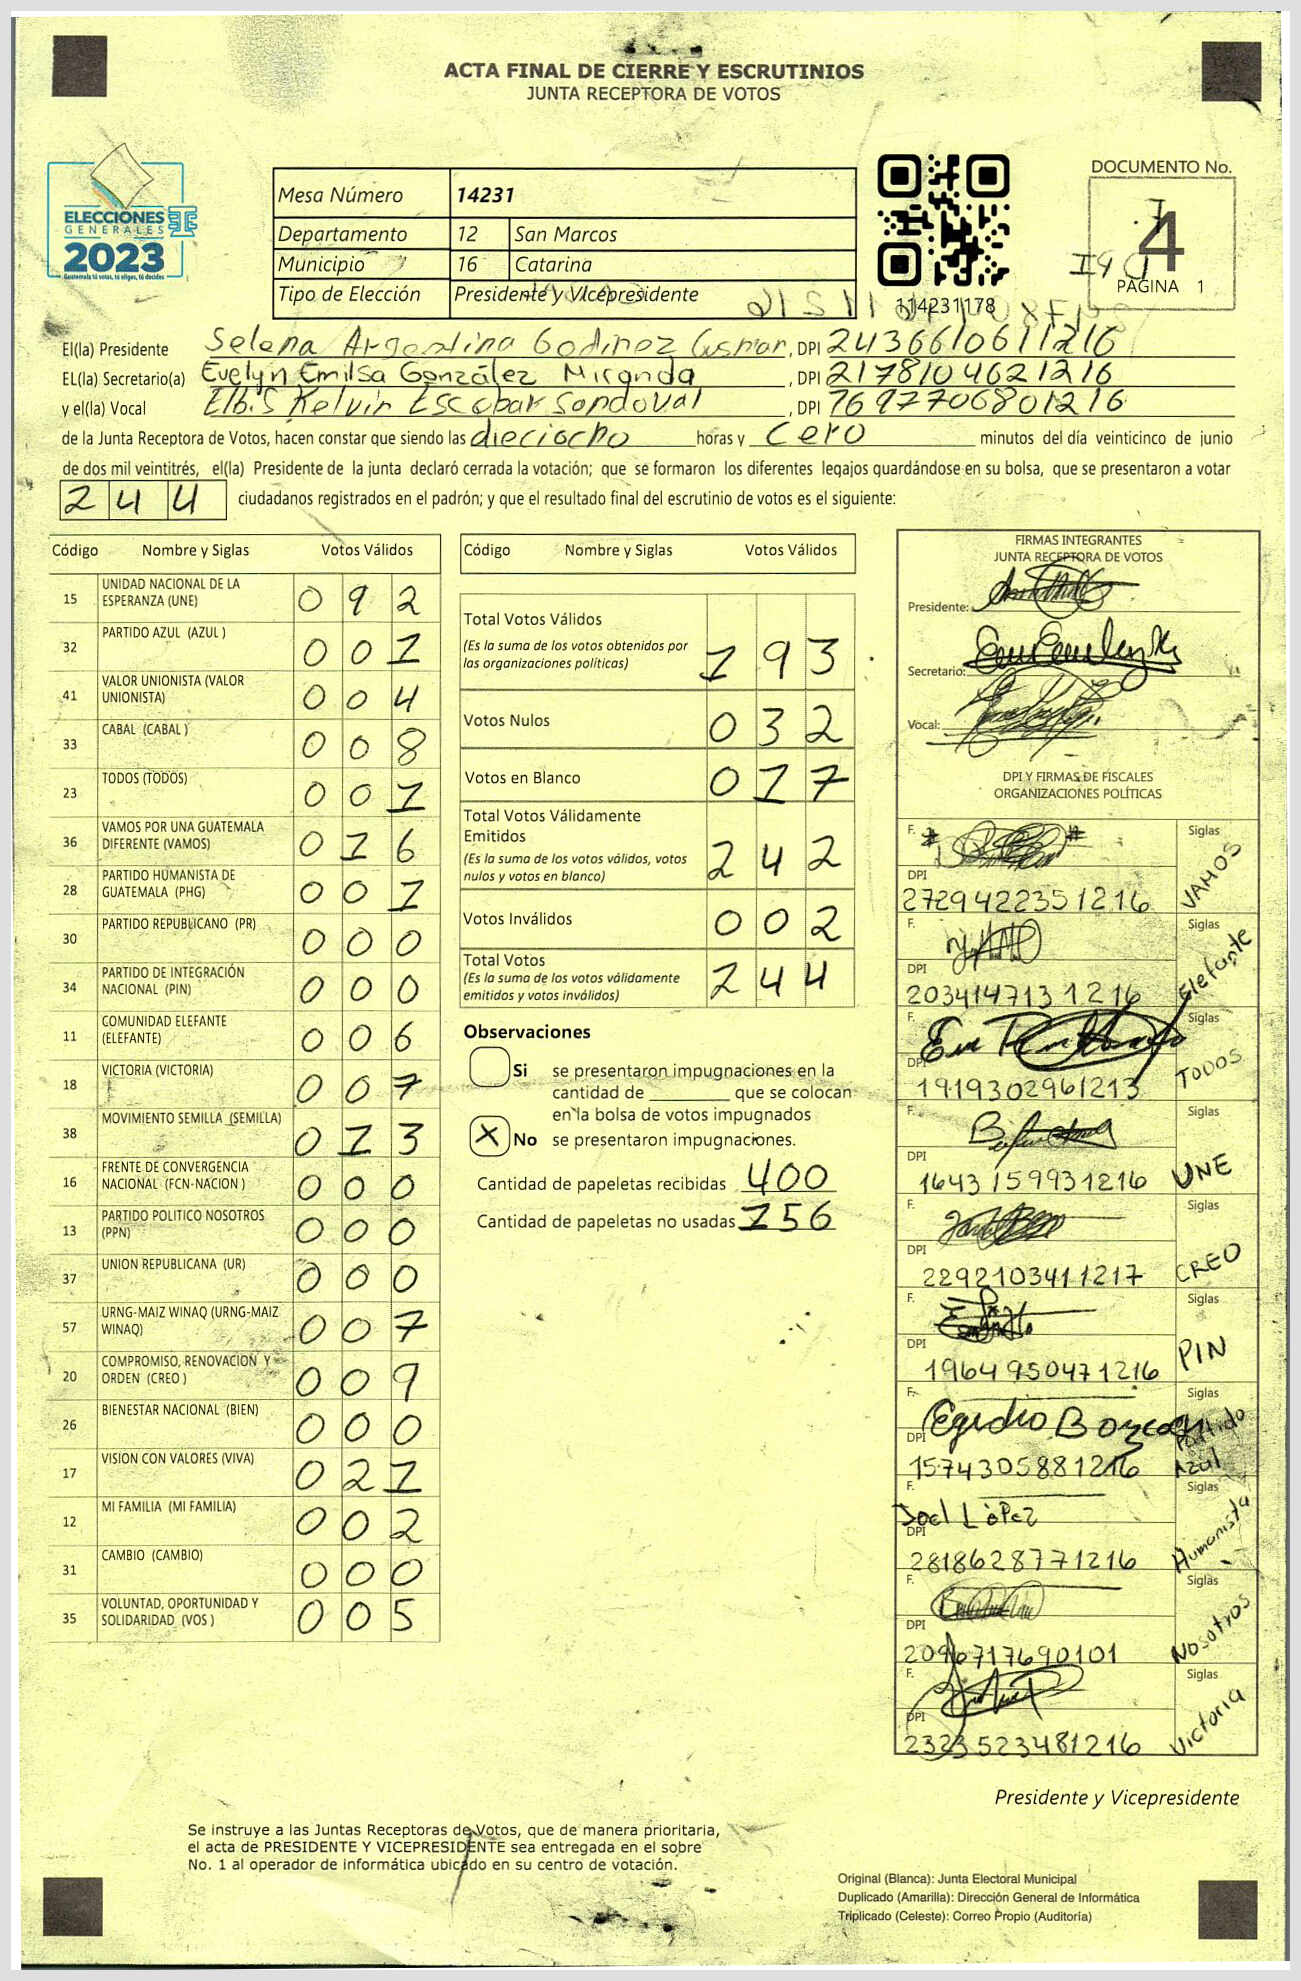 ACTA FINAL DE CIERRE Y ESCRUTINIOS
JUNTA RECEPTORA DE VOTOS
ELECCIONES
GENERALES
2023
Guatemala tú votas, tú eliges, tú decides
Mesa Número 14231
Departamento 12 San Marcos
Municipio 16 Catarina
Tipo de Elección Presidente y Vicepresidente
114231178
DOCUMENTO No.
4
PÁGINA 1
El(la) Presidente Selena Argentina Godinez, DPI 2436610611216
EL(la) Secretario(a) Evelyn Emilsa González Miranda, DPI 2178104621216
y el(la) Vocal Elbis Kelvin Escobar Sandoval, DPI 7697706801216
de la Junta Receptora de Votos, hacen constar que siendo las dieciocho horas y cero minutos del día veinticinco de junio
de dos mil veintitrés, el(la) Presidente de la junta declaró cerrada la votación; que se formaron los diferentes legajos guardándose en su bolsa, que se presentaron a votar
244 ciudadanos registrados en el padrón; y que el resultado final del escrutinio de votos es el siguiente:
Código Nombre y Siglas Votos Válidos
15 UNIDAD NACIONAL DE LA ESPERANZA (UNE) 092
32 PARTIDO AZUL (AZUL ) 001
41 VALOR UNIONISTA (VALOR UNIONISTA) 004
33 CABAL (CABAL ) 008
23 TODOS (TODOS) 001
36 VAMOS POR UNA GUATEMALA DIFERENTE (VAMOS) 016
28 PARTIDO HUMANISTA DE GUATEMALA (PHG) 001
30 PARTIDO REPUBLICANO (PR) 000
34 PARTIDO DE INTEGRACIÓN NACIONAL (PIN) 000
11 COMUNIDAD ELEFANTE (ELEFANTE) 006
18 VICTORIA (VICTORIA) 007
38 MOVIMIENTO SEMILLA (SEMILLA) 013
16 FRENTE DE CONVERGENCIA NACIONAL (FCN-NACION ) 000
13 PARTIDO POLITICO NOSOTROS (PPN) 000
37 UNION REPUBLICANA (UR) 000
57 URNG-MAIZ WINAQ (URNG-MAIZ WINAQ) 007
20 COMPROMISO, RENOVACION Y ORDEN (CREO ) 009
26 BIENESTAR NACIONAL (BIEN) 000
17 VISION CON VALORES (VIVA) 021
12 MI FAMILIA (MI FAMILIA) 002
31 CAMBIO (CAMBIO) 000
35 VOLUNTAD, OPORTUNIDAD Y SOLIDARIDAD (VOS ) 005
Código Nombre y Siglas Votos Válidos
Total Votos Válidos 193
(Es la suma de los votos obtenidos por
las organizaciones políticas)
Votos Nulos 032
Votos en Blanco 017
Total Votos Válidamente
Emitidos 242
(Es la suma de los votos válidos, votos
nulos y votos en blanco)
Votos Inválidos 002
Total Votos 244
(Es la suma de los votos válidamente
emitidos y votos inválidos)
Observaciones
Si se presentaron impugnaciones en la
cantidad de ________ que se colocan
en la bolsa de votos impugnados
X No se presentaron impugnaciones.
Cantidad de papeletas recibidas 400
Cantidad de papeletas no usadas 156
FIRMAS INTEGRANTES
JUNTA RECEPTORA DE VOTOS
Presidente:
Secretario:
Vocal:
DPI Y FIRMAS DE FISCALES
ORGANIZACIONES POLÍTICAS
F. Siglas VAMOS
DPI 2729422351216
F. Siglas Elefante
DPI 2034147131216
F. Siglas TODOS
DPI 1919302961213
F. Siglas UNE
DPI 1643159931216
F. Siglas CREO
DPI 2292103411217
F. Siglas PIN
DPI 1964950471216
F. Egidio Siglas Partido Azul
DPI 1574305881216
F. Joel López Siglas Humanista
DPI 2818628771216
F. Siglas Nosotros
DPI 2096717690101
F. Siglas Victoria
DPI 2323523481216
Presidente y Vicepresidente
Se instruye a las Juntas Receptoras de Votos, que de manera prioritaria,
el acta de PRESIDENTE Y VICEPRESIDENTE sea entregada en el sobre
No. 1 al operador de informática ubicado en su centro de votación.
Original (Blanca): Junta Electoral Municipal
Duplicado (Amarilla): Dirección General de Informática
Triplicado (Celeste): Correo Propio (Auditoría)